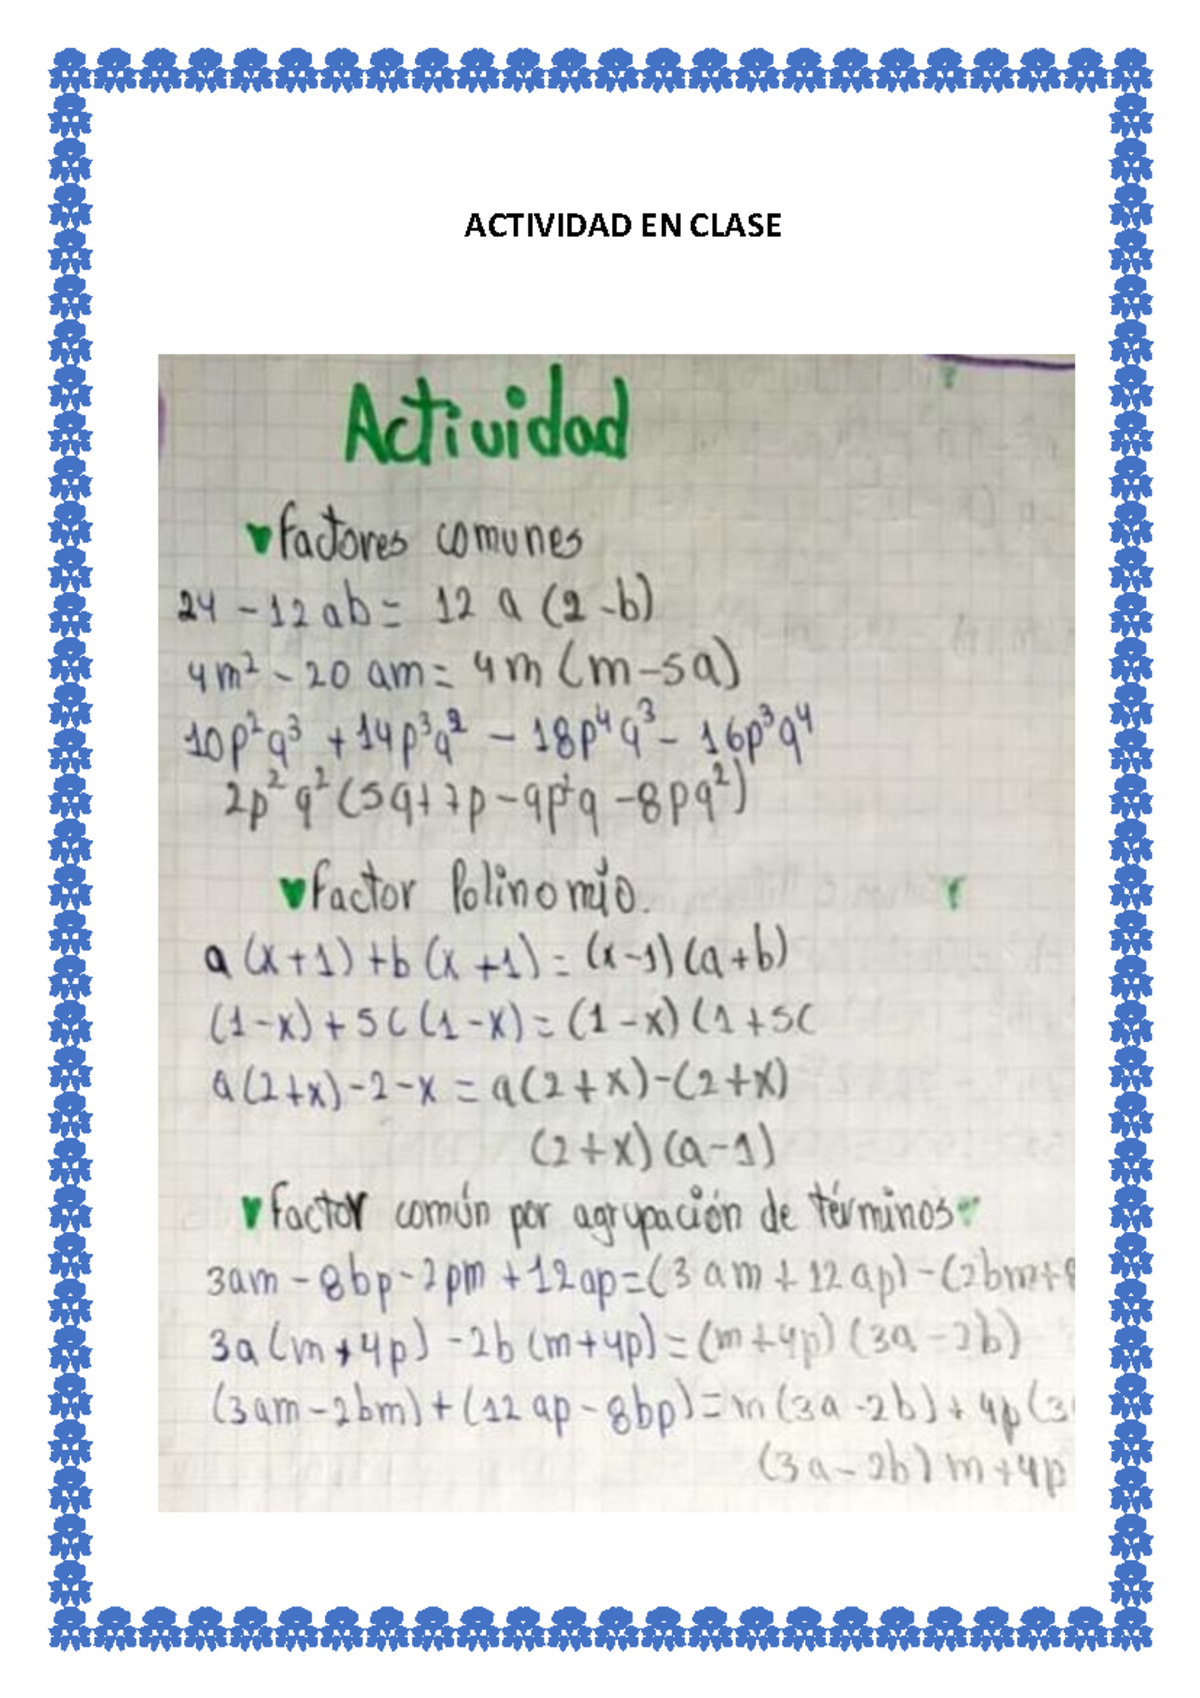 ACTIVIDAD EN CLASE
Actividad
factores comunes
24 - 12ab = 12 a (2-b)
4m² - 20 am = 4m (m-5a)
10p²q³ + 14p³q² - 18p⁴q³ - 16p³q⁴
2p²q² (5q+7p-9p²q-8pq²)
factor Polinomio.
a(x+1)+b(x+1) = (x-1)(a+b)
(1-x)+5c(1-x) = (1-x)(1+5c
a(2+x)-2-x = a(2+x)-(2+x)
(2+x)(a-1)
factor común por agrupación de términos
3am - 8bp - 2pm + 12ap = (3am + 12ap) - (2bm+8
3a(m+4p) - 2b(m+4p) = (m+4p)(3a-2b)
(3am-2bm)+(12ap-8bp) = m(3a-2b)+4p(3
(3a-2b) m+4p